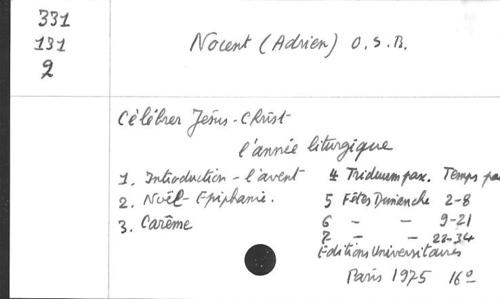 331
131
2
Nocent (Adrien) O.S.B.
Célébrer Jésus-Christ
l'année liturgique
1. Introduction - l'avent
2. Noël - Epiphanie.
3. Carême
4 Triduum pax. Temps pa
5 Fêtes Dimanche 2-8
6 - - 9-21
7 - - 22-34
Editions Universitaires
Paris 1975 16º